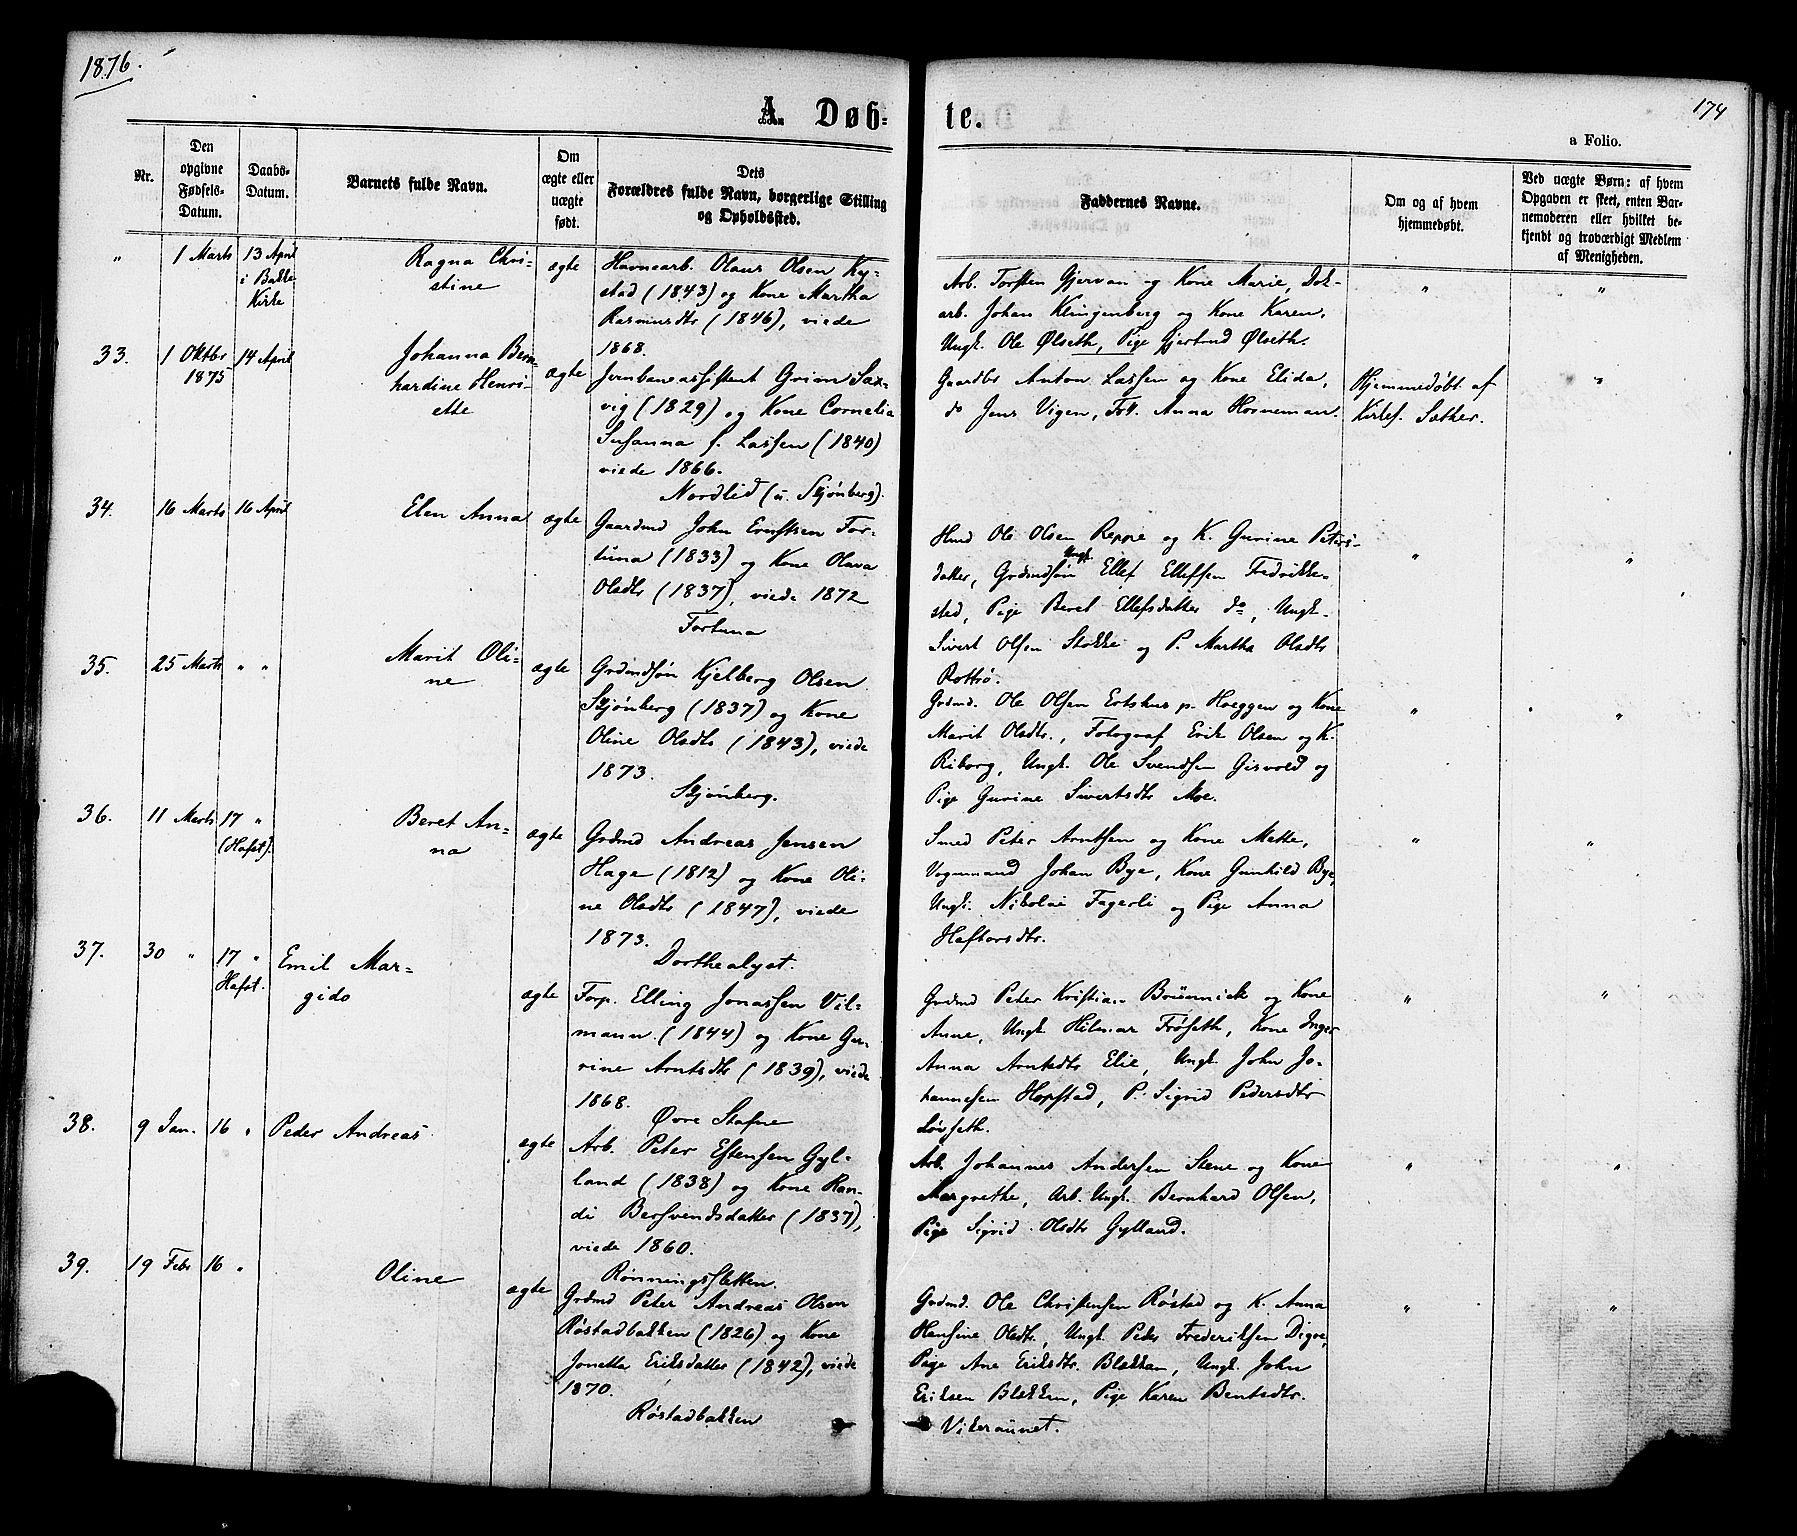 1876.
174
A. Døb-
te.
a Folio.
Nr.
Den
opgivne
Fødsels-
Datum.
Daabs-
Datum.
Barnets fulde Navn.
Om
ægte eller
uægte
født.
Dets
Forældres fulde Navn, borgerlige Stilling
og Opholdssted.
Faddernes Navne.
Om og af hvem
hjemmedøbt.
Ved uægte Børn: af hvem
Opgaven er skeet, enten Bar-
nemoderen eller hvilket be-
kjendt og troværdigt Medlem
af Menigheden.
" 1 Marts 13 April
i Bakke
Kirke
Ragna Chri-
stine
ægte
Havnearb. Olaus Olsen Ky-
stad (1843) og Kone Martha
Rasmusdtr (1846), viede
1868.
Arb. Torsten Gjervan og Kone Marie, Dok-
arb. Johan Klingenberg og Kone Karen,
Ungk. Ole Ølseth, Pige Gjertrud Ølseth.
"
"
33. 1 Oktbr 14 April
1875
Johanna Bern-
hardine Henri-
ette
ægte
Jernbaneassistent Grim Sax-
vig (1829) og Kone Cornelia
Susanna f. Lassen (1840)
viede 1866.
Nordlid (u. Skjønberg).
Gaardbr Anton Lassen og Kone Elida,
do Jens Vigen, Frk. Anna Horneman.
Hjemmedøbt af
Kirkes. Sæther.
"
34. 16 Marts 16 April
Elen Anna
ægte
Gaardmd John Erntsen For-
tuna (1833) og Kone Olava
Olsdtr (1837), viede 1872
Fortuna
Hmd Ole Olsen Reppe og K. Gurine Peters-
datter, Grdmdsøn Ungk. Ellef Ellefsen Fredrikke-
sted, Pige Beret Ellefsdatter do, Ungk.
Sivert Olsen Stokke og P. Martha Olsdtr
Rotthø.
"
"
35. 25 Marts " "
Marit Oli-
ne
ægte
Grdmdsøn Kjelberg Olsen
Skjønberg (1837) og Kone
Oline Olsdtr (1843), viede
1873.
Skjønberg.
Grdmd. Ole Olsen Ertshus p. Hoeggen og Kone
Marit Olsdtr., Fotograf Erik Olsen og K.
Riborg, Ungk. Ole Svendsen Gisvold og
Pige Gurine Sivertsdtr Moe.
"
"
36. 11 Marts 17 "
(Hafst).
Beret An-
na
ægte
Grdmd Andreas Jensen
Hage (1812) og Kone Oli-
ne Olsdtr (1847), viede
1873.
Dorthealyst.
Smed Peter Arntsen og Kone Mette,
Vognmand Johan Bye, Kone Gunhild Bye,
Ungk. Nikolai Fagerli og Pige Anna
Haftorsdtr.
"
"
37. 30 " 17 "
Hafst.
Emil Mar-
gido
ægte
Forp. Elling Jonassen Vil-
mann (1844) og Kone Gu-
rine Arntsdtr (1839), viede
1868.
Øvre Stafne
Grdmd Peter Kristian Brünnick og Kone
Anne, Ungk. Hilmar Frøseth, Kone Inger
Anna Arntsdtr Elie, Ungk. John Jo-
hannesen Hopstad, P. Sigrid Pedersdtr
Løvseth.
"
"
38. 9 Jan. 16 "
Peder Andreas
ægte
Arb. Peter Estensen Gyl-
land (1838) og Kone Ran-
di Bersvendsdatter (1837),
viede 1860.
Rønningsletten.
Arb. Johannes Andersen Stene og Kone
Margrethe, Arb. Ungk. Bernhard Olsen,
Pige Sigrid Olsdtr Gylland.
"
"
39. 19 Febr 16 "
Oline
ægte
Grdmd Peter Andreas Olsen
Røstadbakken (1826) og Kone
Jonetta Eriksdatter (1842), viede
1870.
Røstadbakken
Grdmd. Ole Christensen Røstad og K. Anna
Hansine Olsdtr, Ungk. Peder Frederiksen Digre,
Pige Ane Eriksdtr. Blekkan, Ungk. John
Eriksen Blekken, Pige Karen Bentsdtr.
Vikeraunet.
"
"